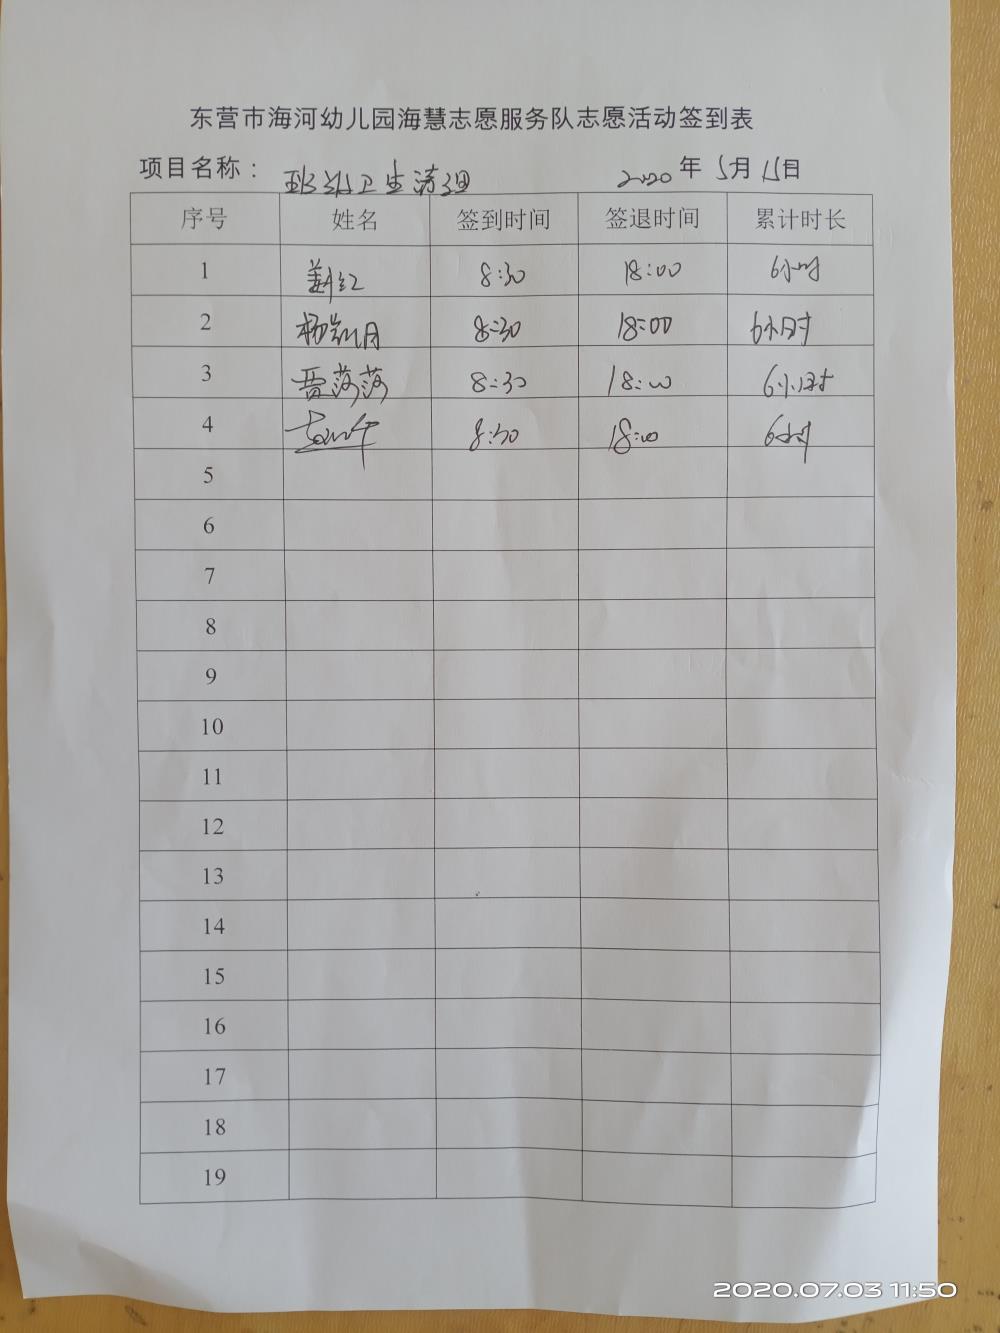 东营市海河幼儿园海慧志愿服务队志愿活动签到表
项目名称： 班级卫生清理 2020 年 5月 15日
序号 姓名 签到时间 签退时间 累计时长
1 姜红 8:30 18:00 6小时
2 杨月 8:30 18:00 6小时
3 贾莎莎 8:30 18:00 6小时
4 8:30 18:00 6小时
5
6
7
8
9
10
11
12
13
14
15
16
17
18
19
2020.07.03 11:50